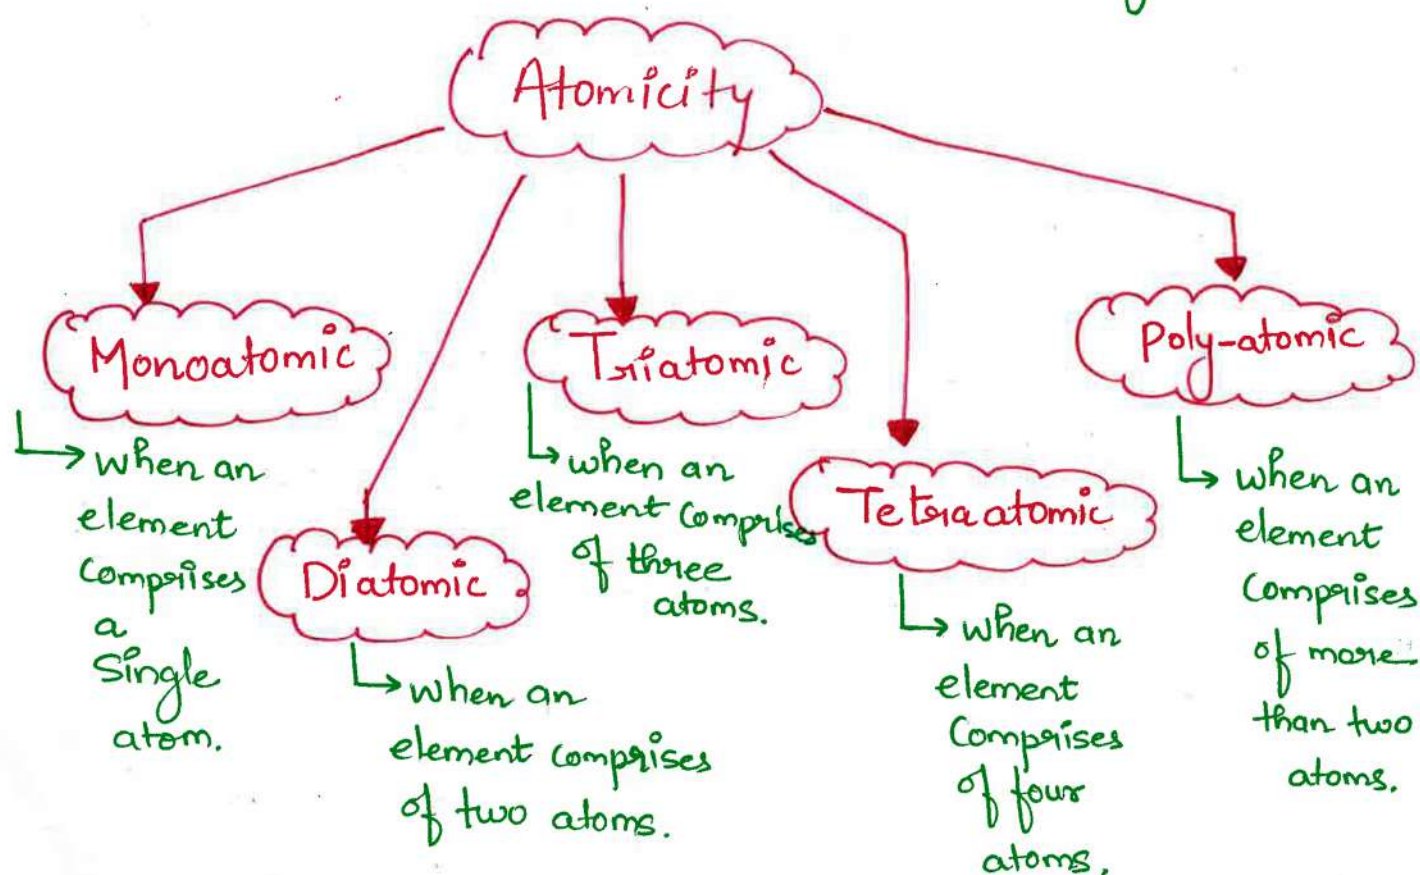 Atomicity
Monoatomic
when an
element
Comprises
a
Single
atom.
Diatomic
when an
element comprises
of two atoms.
Triatomic
when an
element comprises
of three
atoms.
Tetraatomic
when an
element
Comprises
of four
atoms.
Poly-atomic
when an
element
Comprises
of more
than two
atoms.